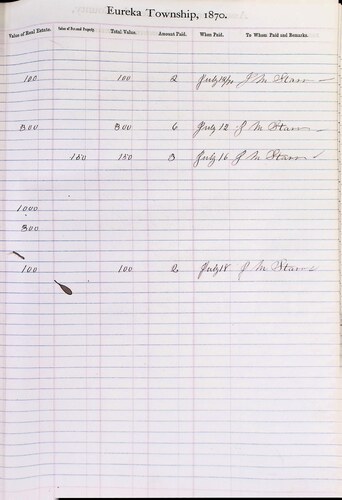 Eureka Township, 1870.
Value of Real Estate. Value of Personal Property. Total Value. Amount Paid. When Paid. To Whom Paid and Remarks.
100 100 2 July J M Starr
300 300 6 July 12 J M Starr
150 150 3 July 16 J M Starr
1000
300
100 100 2 July 18 J M Starr